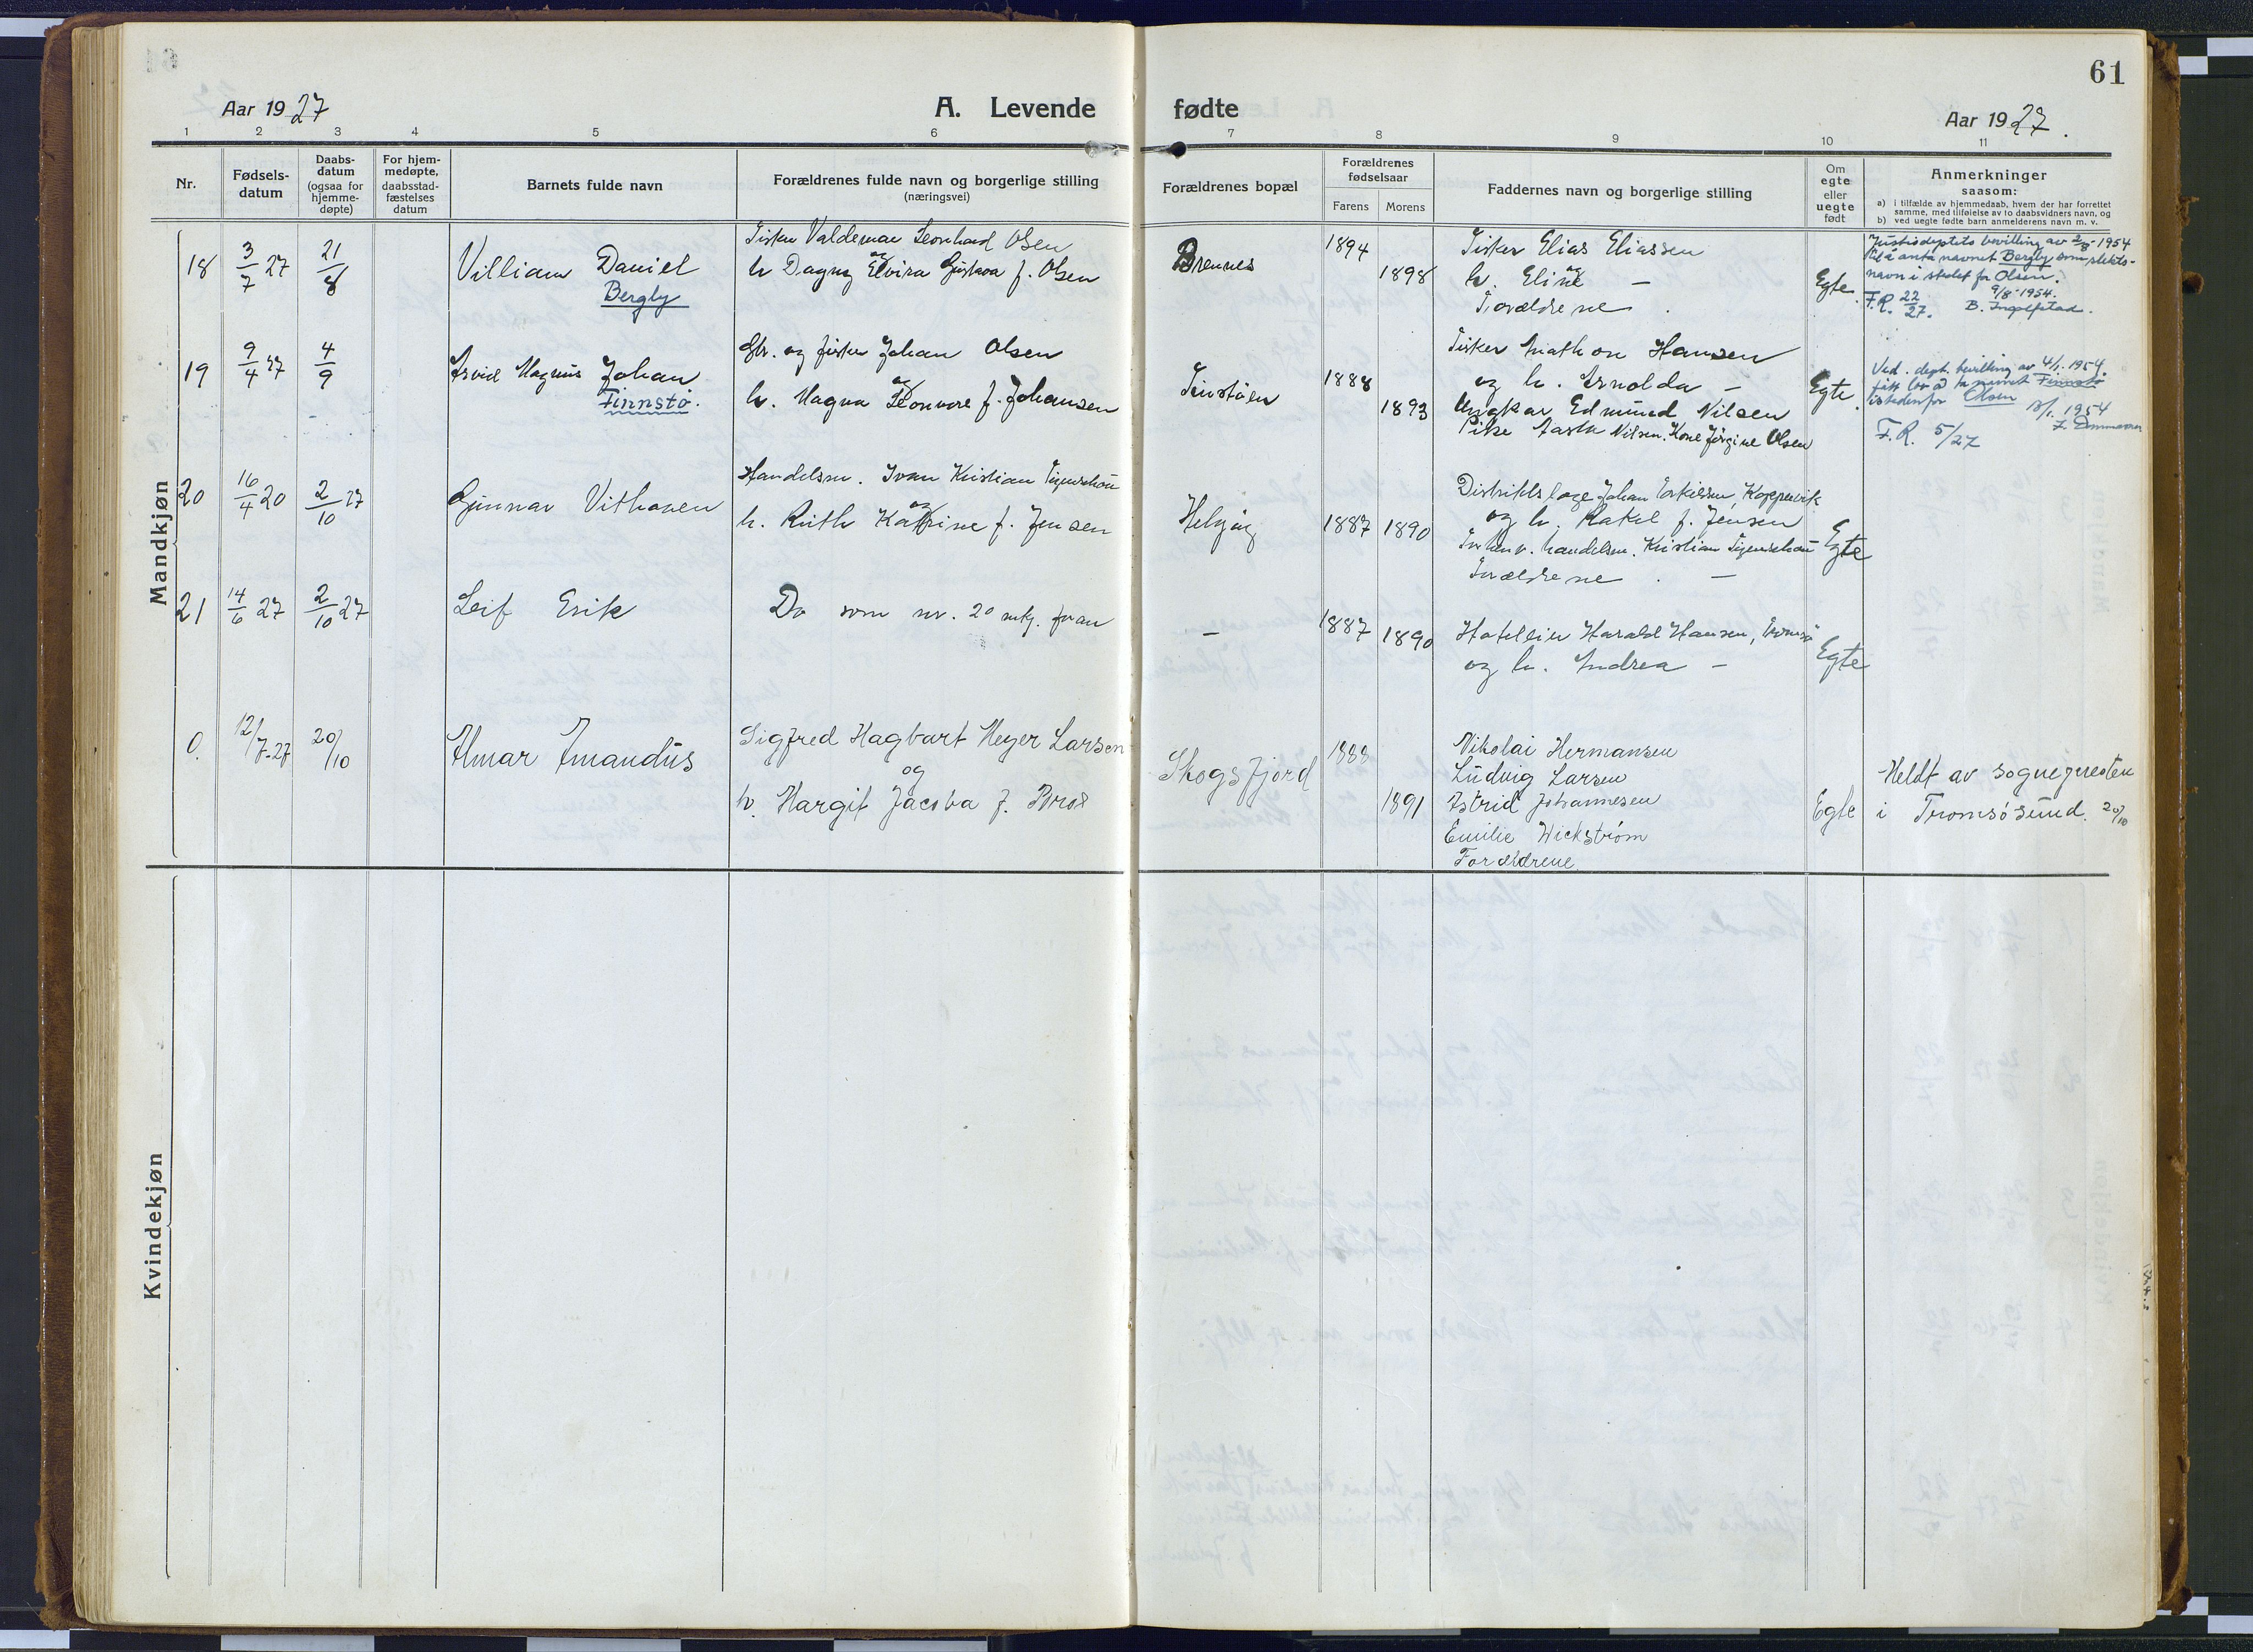 61
Aar 1927
A. Levende fødte
Aar 1927.
1 2 3 4 5 6 7 8 9 10 11
Nr.
Fødsels-
datum
Daabs-
datum
(ogsaa for
hjemme-
døpte)
For hjem-
medøpte,
daabsstad-
fæstelses
datum
Barnets fulde navn
Forældrenes fulde navn og borgerlige stilling
(næringsvei)
Forældrenes bopæl
Forældrenes
fødselsaar
Farens
Morens
Faddernes navn og borgerlige stilling
Om
egte
eller
uegte
født
Anmerkninger
saasom:
a) i tilfælde av hjemmedaab, hvem der har forrettet
samme, med tilføielse av to daabsvidners navn, og
b) ved uegte fødte barn anmelderens navn m. v.
Mandkjøn
18 3/7 27 21/8
Villiam Daniel
Bergly
Fisker Valdemar Leonhard Olsen
og
h Dagny Elvira f. Olsen
Brennes
1894
1898
Fisker Elias Eliassen
og
h. Eline —
Forældrene
Egte.
Justisdeptets bevilling av 2/8-1954
til å anta navnet Bergly som slekts-
navn i stedet for Olsen.
9/8-1954.
F.R. 22/27. B. Ingolfstad.
19 9/4 27 4/9
Arvid Magnus Johan
Finnstø.
Gbr. og fisker Johan Olsen
og
h. Magna Leonore f. Johansen
Finstøen
1888
1893
Fisker Mathon Hansen
og h. Arnolda —
Ungkar Edmund Nilsen
Pike Nilsen. Kone Jørgine Olsen
Egte.
Ved. dept. bevilling av 4/1. 1954.
fått lov å ta navnet Finnstø
istedenfor Olsen
13/1. 1954
F. R. 5/27
20 16/4 20 2/10 27
Gunnar Vithoven
Handelsm. Ivan Kristian Figenschou
og
h. Ruth Katrine f. Jensen
Helgøy
1887 1890
Distriktslæge Johan Eskilssen, Koppervik
og h. Rakel f. Jensen
handelsm. Kristian Figenschou
Forældrene —
Egte
21 14/6 27 2/10 27
Leif Erik
Do som nr. 20 mkj. foran
—
1887 1890
Hotelleier Harald Hansen, Tromsø
og h. Andrea —
Egte
0. 12/7-27 20/10
Almar Amandus
Sigfred Hagbart Meyer Larsen
og
h. Margit Jacoba f. Bros
Skogsfjord
1888
1891
Nikolai Hermansen
Ludvig Larsen
Astrid Johannesen
Emilie Wickstrøm
Forældrene.
Egte
Meldt av sognepresten
i Tromsøsund. 20/10
Kvindekjøn